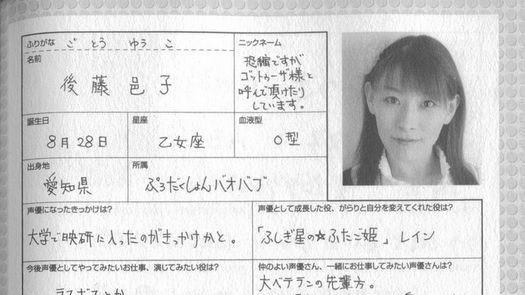 ふりがな ご とう ゆう こ
名前
後藤邑子
ニックネーム
恐縮ですが
ゴットゥーザ様と
呼んで頂けたり
しています。
誕生日
8月28日
星座
乙女座
血液型
O型
出身地
愛知県
所属
ぷろだくしょんバオバブ
声優になったきっかけは?
大学で映研に入ったのがきっかけかと。
声優として成長した役、がらりと自分を変えてくれた役は?
「ふしぎ星の★ふたご姫」 レイン
今後声優としてやってみたいお仕事、演じてみたい役は?
仲のよい声優さん、一緒にお仕事してみたい声優さんは?
大ベテランの先輩方。